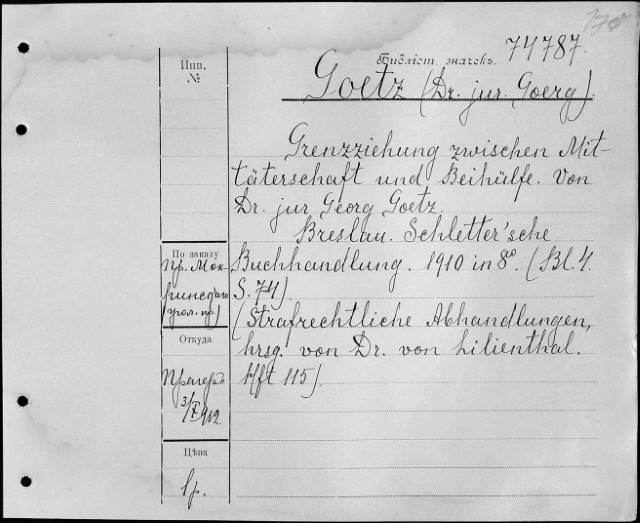 74787.
Библіот. значекъ.
Инв.
№
Goetz (Dr. jur. Goerg).
Grenzziehung zwischen Mit-
täterschaft und Beihülfe. Von
Dr. jur Georg Goetz.
Breslau. Schletter'sche
Buchhandlung. 1910 in 8°. (Bl. 4.
S. 74).
(Strafrechtliche Abhandlungen,
hrsg. von Dr. von Lilienthal.
Hft 115).
По заказу
пр. Мок-
ринскаго
(угол. пр)
Откуда
Прагеръ
3/I 912
Цѣна
1 р.